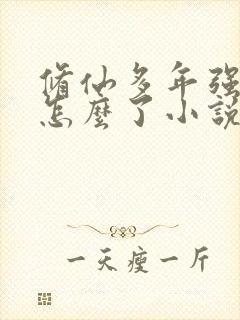 脩仙多年强
怎麼了小説
一天瘦一斤